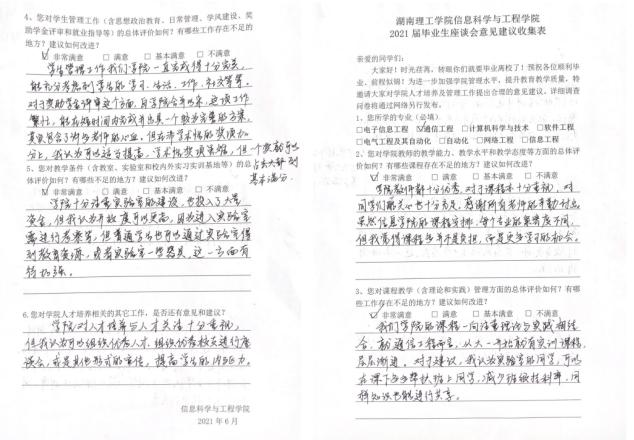 湖南理工学院信息科学与工程学院
2021 届毕业生座谈会意见建议收集表
亲爱的同学们：
大家好！时光荏苒，转眼你们就要毕业离校了！预祝各位顺利毕
业、前程似锦！为进一步加强学院管理水平，提升教育教学质量，特
邀请大家对学院人才培养及管理工作提出合理的意见建议，详细调查
问卷将通过网络另行发布。
1、您所学的专业（必填）
□电子信息工程 ☑通信工程 □计算机科学与技术 □软件工程
□电气工程及其自动化 □自动化 □网络工程 □其他
2、您对学院教师的教学能力、教学水平和教学态度等方面的总体评
价如何？有哪些工作存在不足的地方？建议如何改进？
☑ 非常满意 □ 满意 □ 基本满意 □ 不满意
学院教师都十分优秀，对于课程都十分重视，对
同学们的关心也十分充足，感谢所有老师的辛勤付出
虽然信息学院的课程安排，每个专业的 不同，
但我觉得课程多并不是负担，而是更多学习的机会。
3、您对课程教学（含理论和实践）管理方面的总体评价如何？有哪
些工作存在不足的地方？建议如何改进？
☑ 非常满意 □ 满意 □ 基本满意 □ 不满意
我们学院的课程一向注重理论与实践相结
合，就通信工程而言，从大一开始就有实训课程
层层渐进，对于建议，我认为实验室的同学，可以
在课下多多帮扶班上同学，减少班级挂科率，同
样知识也能进行共享。
4、您对学生管理工作（含思想政治教育、日常管理、学风建设、奖
助学金评审和就业指导等）的总体评价如何？有哪些工作存在不足的
地方？建议如何改进？
☑ 非常满意 □ 满意 □ 基本满意 □ 不满意
学生管理工作我们学院一直完成得十分完美，
能充分考虑到学生的学习、生活、工作、社交等等。
对于奖助学金评审这个方面，
繁忙，能在短时间内完成并出具一个较为完善的方案，
其中包含了许多老师的心血，但在非学术性的奖项加
分上，我认为可以适当提高，学术性奖项虽难，但一个 就可以
占去大部 到
基本满分。
5、您对教学条件（含教室、实验室和校内外实习实训基地等）的总
体评价如何？有哪些不足的地方？建议如何改进？
☑ 非常满意 □ 满意 □ 基本满意 □ 不满意
学院十分注重实验室的建设，也投入了大量
资金，但我认为开放度可以更高，因为进入实验室
需进行考察等，但普通学生也可以通过实验室得
到教育资源，或者实验室一些器具，这一方面有
待加强。
6、您对学院人才培养相关的其它工作，是否还有意见和建议？
学院对人才培养与人才关注十分重视，
但我认为可以组织优秀人才，组织优秀校友进行座
谈会，或是其他形式的宣传，提高学生的 力。
信息科学与工程学院
2021 年 6 月